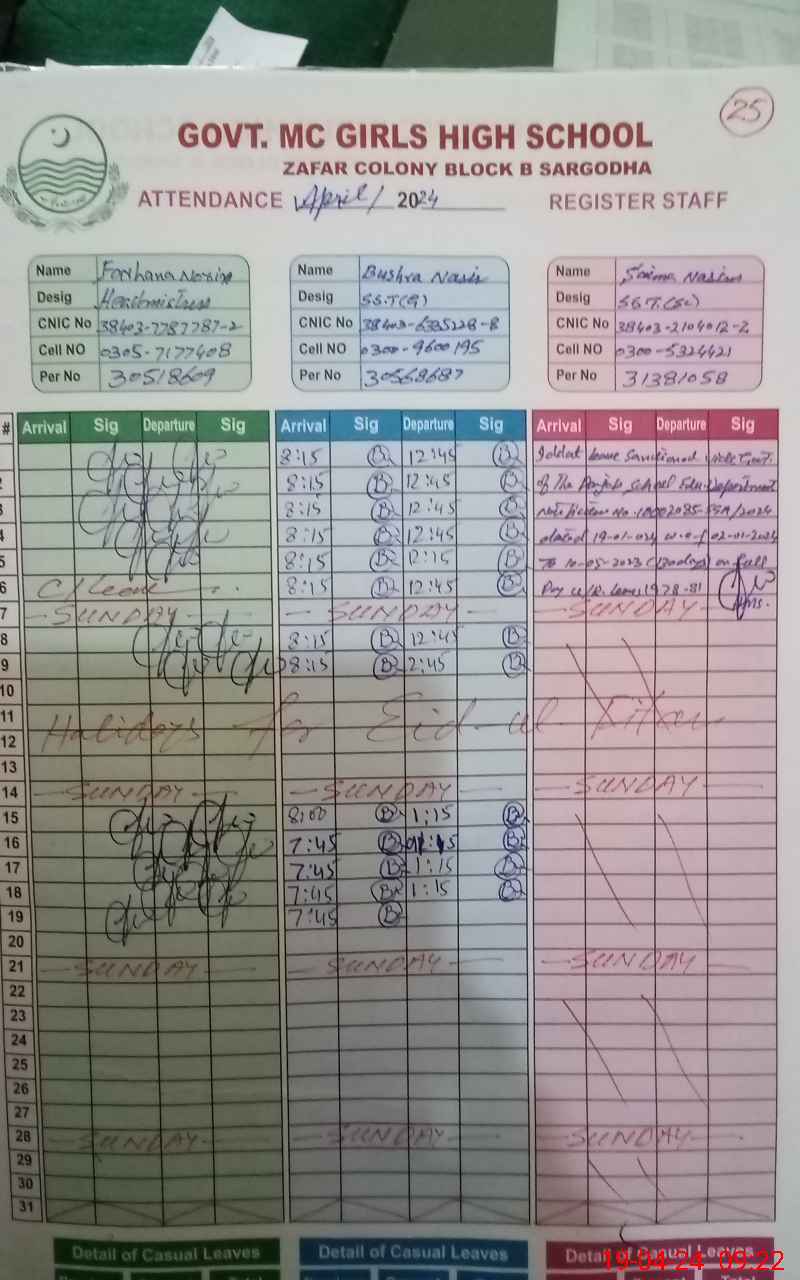 25
GOVT. MC GIRLS HIGH SCHOOL
ZAFAR COLONY BLOCK B SARGODHA
ATTENDANCE April/ 2024 REGISTER STAFF
Name Farhana Nasir Name Bushra Nasir Name Saima
Desig Headmistress Desig S.S.T(G) Desig S.S.T.(Sc)
CNIC No 38403-7787787-2 CNIC No 38403-6335228-8 CNIC No 38403-2104012-2
Cell NO 0305-7177408 Cell NO 0300-9600195 Cell NO 0300-5324421
Per No 30518609 Per No 30568687 Per No 31381058
# Arrival Sig Departure Sig Arrival Sig Departure Sig Arrival Sig Departure Sig
8:15 B 12:45 B Iddat leave Sanctioned vide Govt.
2 8:15 B 12:45 B of The Punjab School Edu: Department
3 8:15 B 12:45 B Notification No.
4 8:15 B 12:45 B dated 19-01-024 w.e.f 02-01-2024
5 8:15 B 12:15 B To 10-05-2023 (130days) on full
6 C/Leave 8:15 B 12:45 B Pay 1978-81
7 -SUNDAY- -SUNDAY- -SUNDAY-
8 8:15 B 12:45 B
9 8:15 B 2:45 B
10
11 Halidays for Eid-ul Fiter
12
13
14 -SUNDAY- -SUNDAY- -SUNDAY-
15 8:00 B 1:15 B
16 7:45 B B
17 7:45 B 1:15 B
18 7:45 B 1:15 B
19 7:45 B
20
21 -SUNDAY- -SUNDAY- -SUNDAY-
22
23
24
25
26
27
28 -SUNDAY- -SUNDAY- -SUNDAY-
29
30
31
Detail of Casual Leaves Detail of Casual Leaves Detail of Casual Leaves
19-04-24 09:22